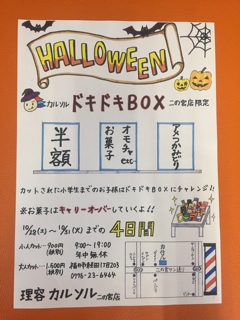 HALLOWEEN
カルソル ドキドキBOX 二の宮店限定
半額
オモチャ
お菓子
etc…
アメつかみどり
カットされた小学生までのお子様はドキドキBOXにチャレンジ!!
※お菓子はキャリーオーバーしていくよ!!
10/28(土)〜10/31(火)までの 4日間
小人カット…900円
(税別)
大人カット…1,500円
(税別)
9:00〜19:00
年中無休
0776-23-6464
理容 カルソル 二の宮店